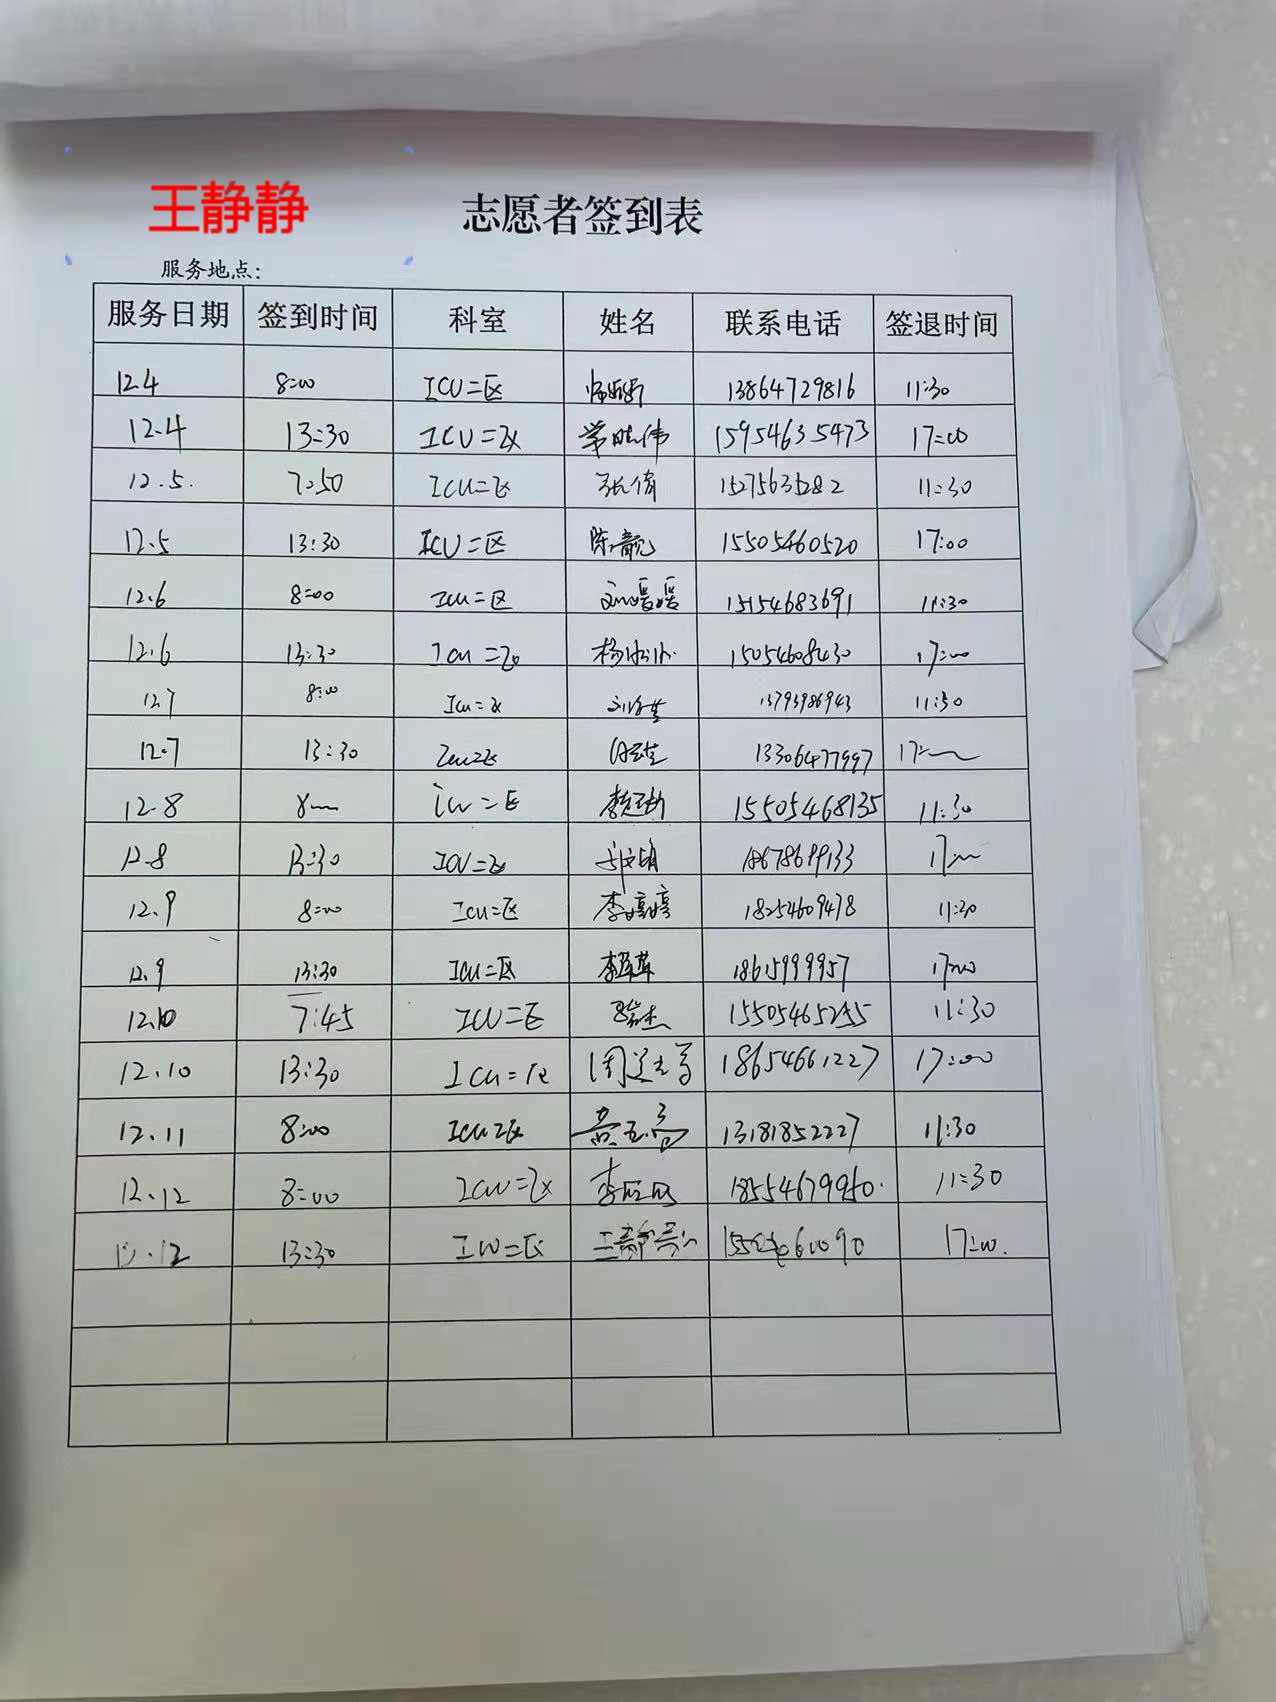 王静静
志愿者签到表
服务地点:
服务日期 签到时间 科室 姓名 联系电话 签退时间
12.4 8=00 ICU=区 13864729816 11:30
12.4 13:30 ICU=区 常晓伟 15954635473 17=00
12.5. 7:50 ICU=区 张倩 15275635282 11:30
12.5 13:30 ICU=区 陈靓 15505460520 17:00
12.6 8=00 ICU=区 刘媛媛 15154683691 11:30
12.6 13:30 ICU=区 15054608430 17:00
12.7 8:00 ICU=区 13793986943 11:30
12.7 13:30 ICU=区 13306477997 17:00
12.8 8:00 ICU=区 15505468135 11:30
12.8 13:30 ICU=区 18678699133 17:00
12.9 8=00 ICU=区 李婷婷 18254609478 11:30
12.9 13:30 ICU=区 李苹苹 17:00
12.10 7:45 ICU=区 15505465255 11:30
12.10 13:30 ICU=区 18654661227 17:00
12.11 8:00 ICU=区 13181852227 11:30
12.12 8=00 ICU=区 18554679950. 11=30
12.12 13:30 ICU=区 王静静 17=00.